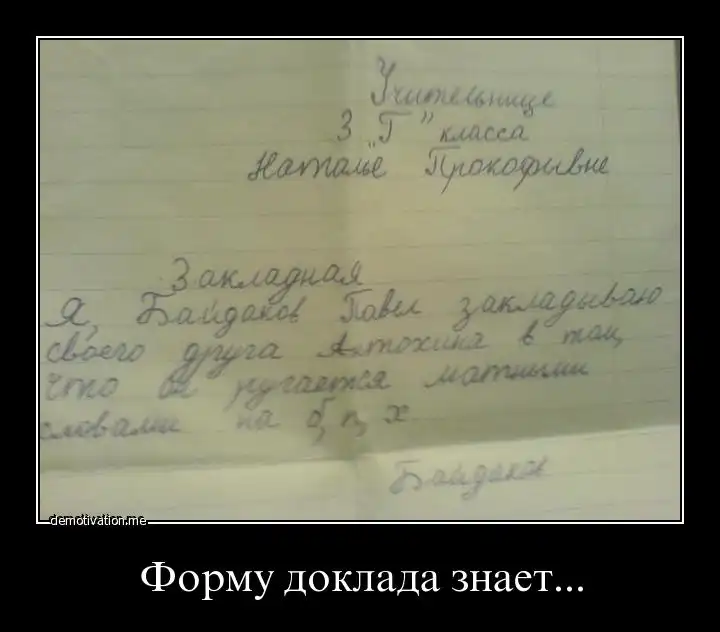 Учительнице
3 „Г” класса
Наталье Прокофывне
Закладная
Я, Байдаков Павел закладываю
своего друга Антохина в том,
что он ругается матными
словами на б, п, х
Байдаков
demotivation.me
Форму доклада знает...